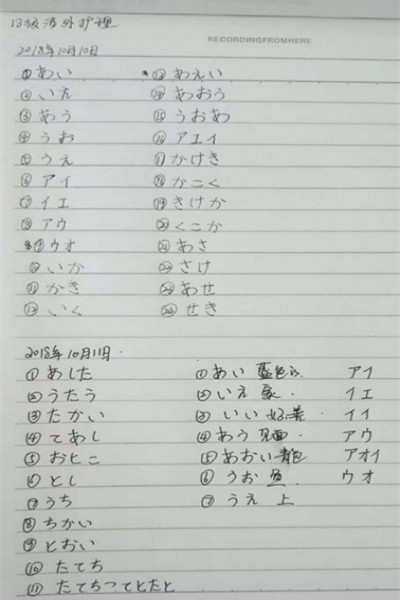 18级涉外护理
RECORDINGFROMHERE
2018年10月10日
①あい
②いえ
③あう
④うお
⑤うえ
⑥アイ
⑦イエ
⑧アウ
⑨ウオ
⑩いか
⑪かき
⑫いく
⑬あえい
⑭あおう
⑮うおあ
⑯アエイ
⑰かけき
⑱かこく
⑲きけか
⑳くこか
㉑あさ
㉒さけ
㉓あせ
㉔せき
2018年10月11日.
①あした
②うたう
③たかい
④てあし
⑤おとこ
⑥とし
⑦うち
⑧ちかい
⑨とおい
⑩たてち
⑪たてちつてとたと
①あい 蓝色 アイ
②いえ 家. イエ
③いい 好. イイ
④あう 见面. アウ
⑤あおい 青色 アオイ
⑥うお 鱼. ウオ
⑦うえ 上